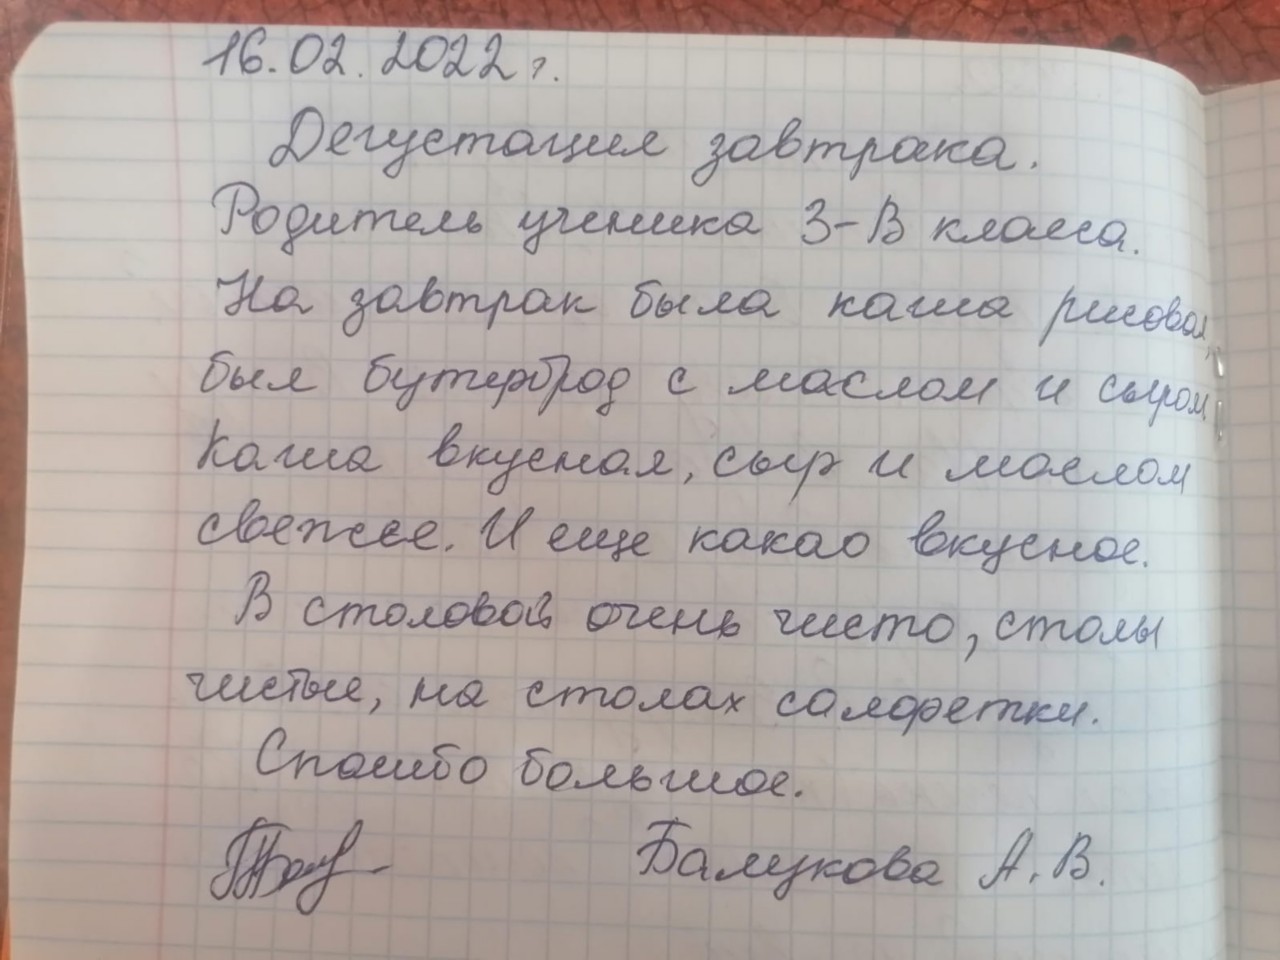 16.02.2022 г.
Дегустация завтрака.
Родитель ученика 3-В класса.
На завтрак была каша рисовая,
был бутерброд с маслом и сыром
Каша вкусная, сыр и маслом
свежее. И еще какао вкусное.
В столовой очень чисто, столы
чистые, на столах салфретки.
Спасибо большое.
Балукова А. В.